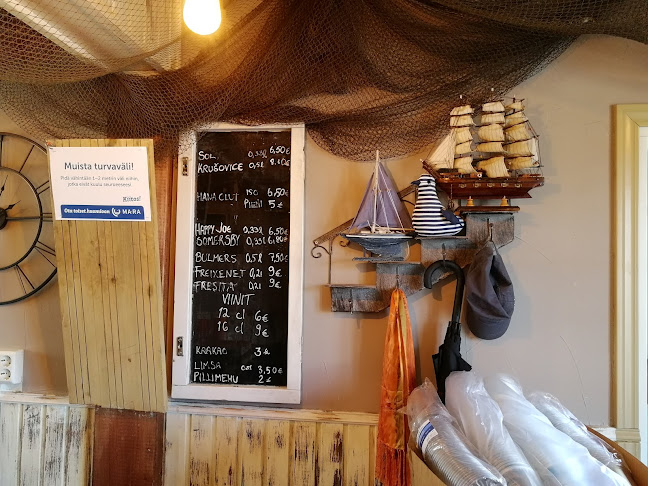 Muista turvaväli!
Pidä vähintään 1–2 metrin väli niihin,
jotka eivät kuulu seurueeseesi
Kiitos!
Ota toiset huomioon MARA
SOL 0,33l 6,50€
KRUŠOVICE 0,5l
HANA OLUT ISO 6,50€
PIENI 5€
HAPPY JOE 0,33l 6,50€
SOMERSBY 0,33l 6,80€
BULMERS 0,5l 7,50€
FREIXENET 0,2l 9€
FRESITA 0,2l 9€
VIINIT
12 cl 6€
16 cl 9€
KAAKAO 3€
LIMSA 3,50€
PILLIMEHU 2€